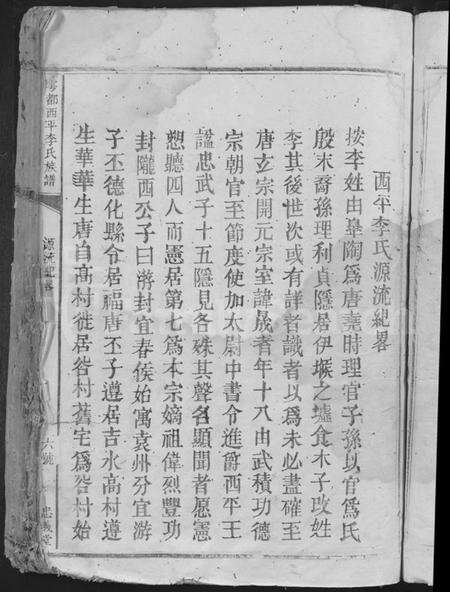 西平李氏源流紀畧
按李姓由臯陶爲唐堯時理官子孫以官爲氏
殷末裔孫理利貞隱居伊堠之墟食木子改姓
李其後世次或有詳者識者以爲未必盡確至
唐玄宗開元宗室諱晟者年十八由武積功德
宗朝官至節度使加太尉中書令進爵西平王
謚忠武子十五隱見各殊其聲名顯聞者愿憲
愬聽四人而憲居第七爲本宗嫡祖偉烈豐功
封隴西公子曰游封宜春侯始寓袁州分宜游
子丕德化縣令居福唐丕子遵居吉水高村遵
生華華生唐自高村徙居谷村舊宅爲谷村始
都西平李氏族譜
源流紀畧
六號
忠義堂